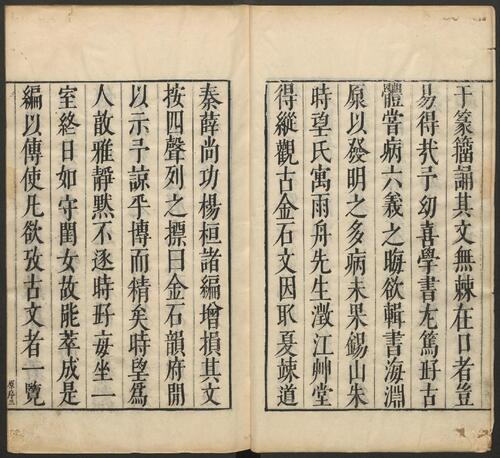 于篆籀誦其文無棘在口者豈
易得㢤予幼喜學書尤篤好古
體嘗病六義之晦欲輯書海淵
原以發明之多病未果錫山朱
時望氏寓雨舟先生澂江艸堂
得縱觀古金石文因取夏竦道
泰薛尚功楊桓諸編增損其文
按四聲列之摽曰金石韻府開
以示予諒乎博而精矣時望爲
人敢雅靜黙不逐時好毎坐一
室終日如守閨女故能萃成是
編以傳使凡欲攷古文者一覽